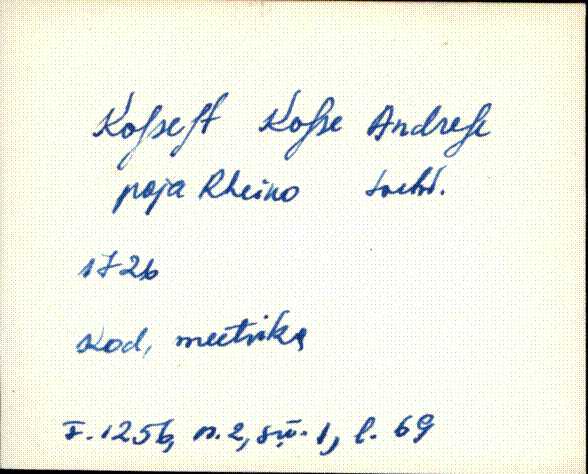 Koſseſt Koſse Andreſe
poja Rheino
1726
Kod, meetrika
F. 1256, n. 2, sü. 1, l. 69